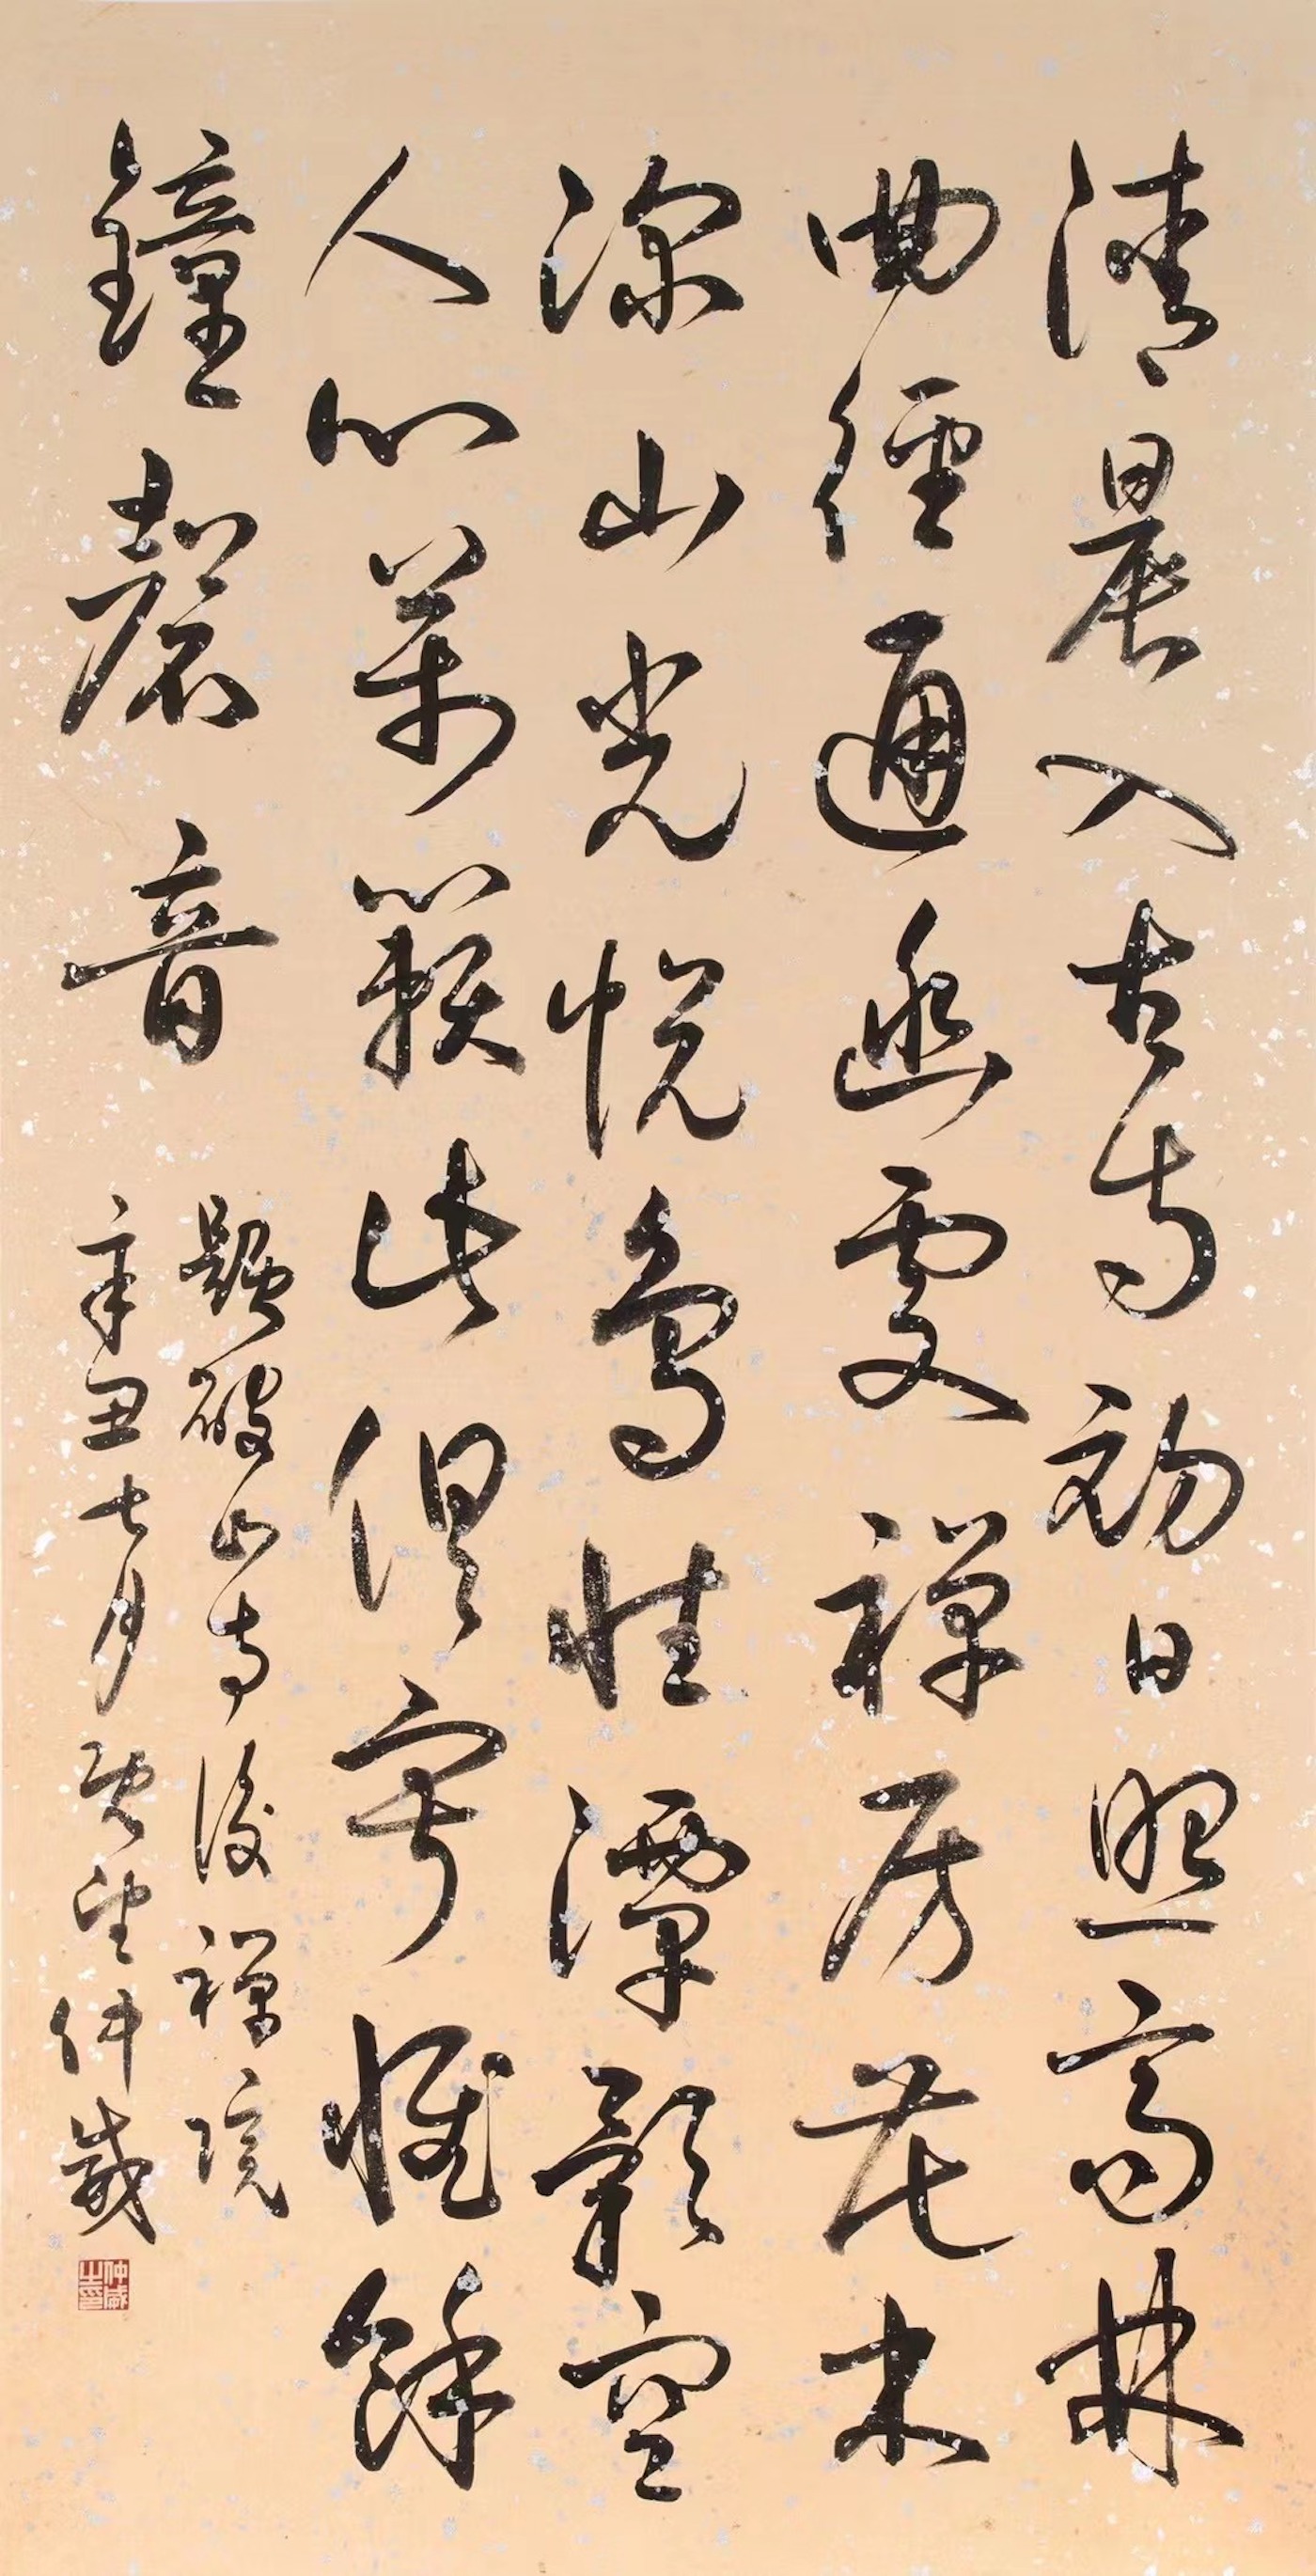 清晨入古寺初日照高林
曲徑通幽處禪房花木
深山光悅鳥性潭影空
人心萬籟此俱寂惟餘
鐘磬音
題破山寺後禪院
辛丑七月既望仲威
仲威之印